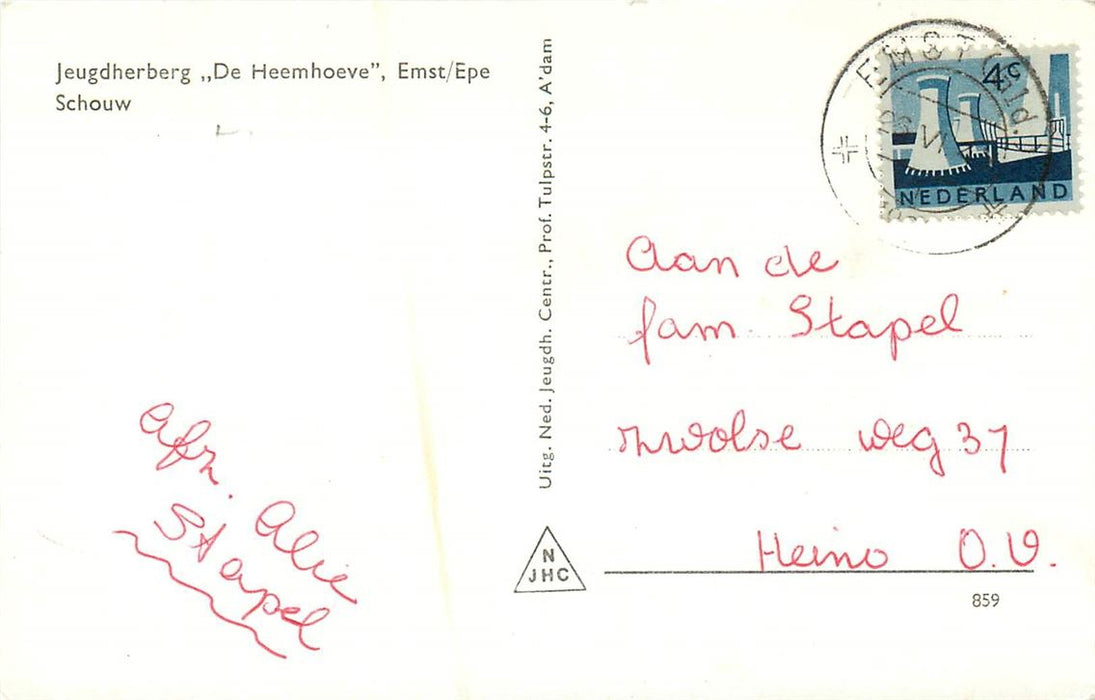 Jeugdherberg „De Heemhoeve”, Emst/Epe
Schouw
afz. Alie
Stapel
Uitg. Ned. Jeugdh. Centr., Prof. Tulpstr. 4-6, A'dam
N
JHC
EMST (Gld.)
VI
4c
NEDERLAND
Aan de
fam. Stapel
zwolse weg 37
Heino O.V.
859